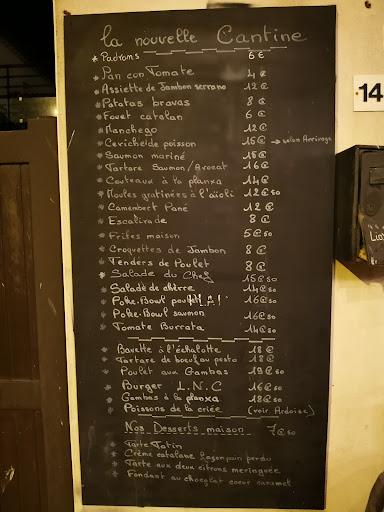 La nouvelle Cantine
* Padrons 6 €
* Pan con Tomate 4 €
* Assiette de Jambon serrano 12 €
* Patatas bravas 8 €
* Fouet catalan 6 €
* Manchego 12 €
* Ceviche de poisson 15 € → selon Arrivage
* Saumon mariné 15 €
* Tartare Saumon/Avocat 16 €
* Couteaux à la planxa 14 €
* Moules gratinées à l'aïoli 12 € 50
* Camembert Pané 12 €
* Escalivade 8 €
* Frites maison 5 € 50
* Croquettes de Jambon 8 €
* Tenders de Poulet 8 €
* Salade du Chef 15 € 50
* Salade de chèvre 14 € 50
* Poke-Bowl poulet 16 € 50
* Poke-Bowl saumon 16 € 50
* Tomate Burrata 14 € 50
* Bavette à l'échalotte 18 €
* Tartare de boeuf au pesto 18 €
* Poulet aux Gambas 19 € 50
* Burger L.N.C 16 € 50
* Gambas à la planxa 18 € 50
* Poissons de la criée (voir Ardoise)
Nos Desserts maison 7 € 50
* Tarte Tatin
* Crème catalane façon pain perdu
* Tarte aux deux citrons meringuée
* Fondant au chocolat coeur caramel
14